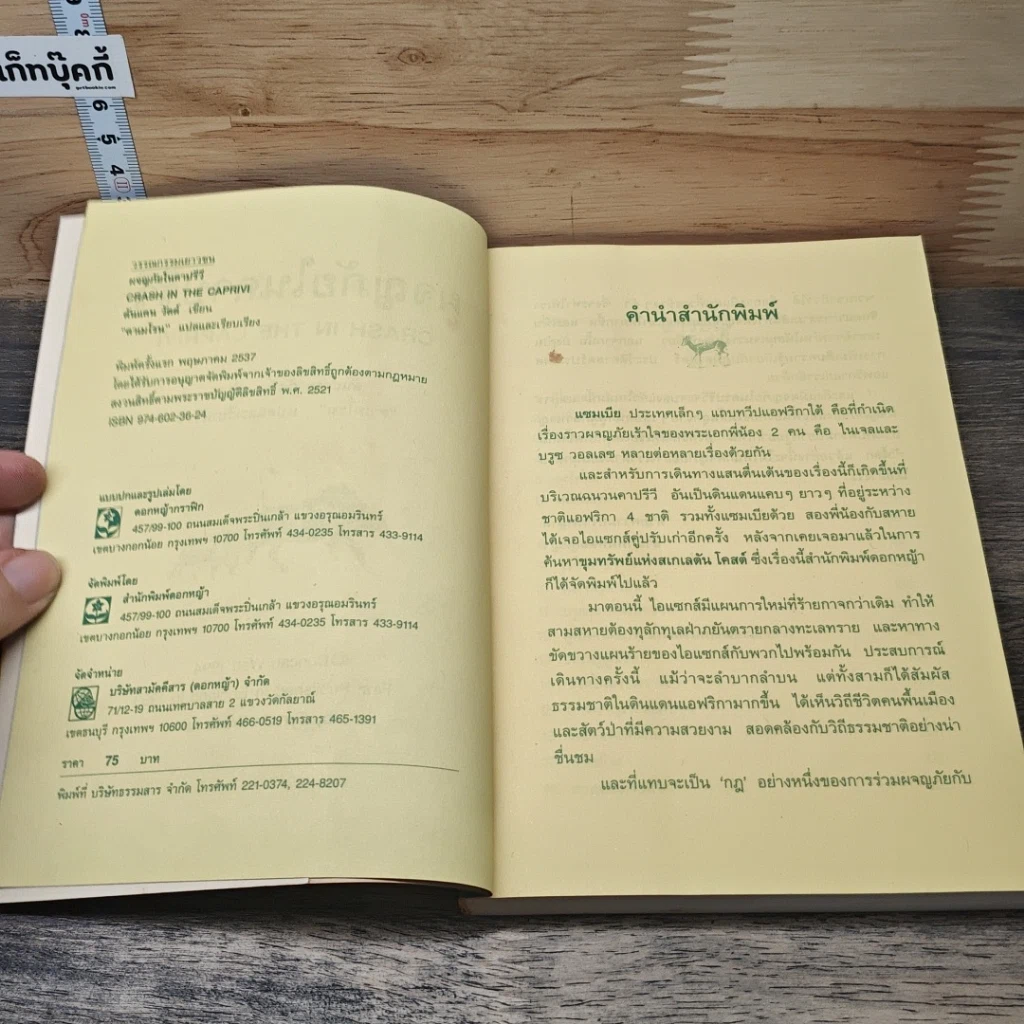 ก็ทบุ๊คกี้
6
5
4
วรรณกรรมเยาวชน
ผจญภัยในคาปรีวี
CRASH IN THE CAPRIVI
ดันแคน วัตต์ เขียน
"ดาแมโรน" แปลและเรียบเรียง
พิมพ์ครั้งแรก พฤษภาคม 2537
โดยได้รับการอนุญาตจัดพิมพ์จากเจ้าของลิขสิทธิ์ถูกต้องตามกฎหมาย
สงวนสิทธิ์ตามพระราชบัญญัติลิขสิทธิ์ พ.ศ. 2521
ISBN 974-602-36-24
แบบปกและรูปเล่มโดย
ดอกหญ้ากราฟิก
457/99-100 ถนนสมเด็จพระปิ่นเกล้า แขวงอรุณอมรินทร์
เขตบางกอกน้อย กรุงเทพฯ 10700 โทรศัพท์ 434-0235 โทรสาร 433-9114
จัดพิมพ์โดย
สำนักพิมพ์ดอกหญ้า
457/99-100 ถนนสมเด็จพระปิ่นเกล้า แขวงอรุณอมรินทร์
เขตบางกอกน้อย กรุงเทพฯ 10700 โทรศัพท์ 434-0235 โทรสาร 433-9114
จัดจำหน่าย
บริษัทสามัคคีสาร (ดอกหญ้า) จำกัด
71/12-19 ถนนเทศบาลสาย 2 แขวงวัดกัลยาณ์
เขตธนบุรี กรุงเทพฯ 10600 โทรศัพท์ 466-0519 โทรสาร 465-1391
ราคา 75 บาท
พิมพ์ที่ บริษัทธรรมสาร จำกัด โทรศัพท์ 221-0374, 224-8207
คำนำสำนักพิมพ์
แซมเบีย ประเทศเล็กๆ แถบทวีปแอฟริกาใต้ คือที่กำเนิด
เรื่องราวผจญภัยเร้าใจของพระเอกพี่น้อง 2 คน คือ ไนเจลและ
บรูซ วอลเลซ หลายต่อหลายเรื่องด้วยกัน
และสำหรับการเดินทางแสนตื่นเต้นของเรื่องนี้ก็เกิดขึ้นที่
บริเวณฉนวนคาปรีวี อันเป็นดินแดนแคบๆ ยาวๆ ที่อยู่ระหว่าง
ชาติแอฟริกา 4 ชาติ รวมทั้งแซมเบียด้วย สองพี่น้องกับสหาย
ได้เจอไอแซกส์คู่ปรับเก่าอีกครั้ง หลังจากเคยเจอมาแล้วในการ
ค้นหาขุมทรัพย์แห่งสเกเลตัน โคสต์ ซึ่งเรื่องนี้สำนักพิมพ์ดอกหญ้า
ก็ได้จัดพิมพ์ไปแล้ว
มาตอนนี้ ไอแซกส์มีแผนการใหม่ที่ร้ายกาจกว่าเดิม ทำให้
สามสหายต้องทุลักทุเลฝ่าภยันตรายกลางทะเลทราย และหาทาง
ขัดขวางแผนร้ายของไอแซกส์กับพวกไปพร้อมกัน ประสบการณ์
เดินทางครั้งนี้ แม้ว่าจะลำบากลำบน แต่ทั้งสามก็ได้สัมผัส
ธรรมชาติในดินแดนแอฟริกามากขึ้น ได้เห็นวิถีชีวิตคนพื้นเมือง
และสัตว์ป่าที่มีความสวยงาม สอดคล้องกับวิถีธรรมชาติอย่างน่า
ชื่นชม
และที่แทบจะเป็น 'กฎ' อย่างหนึ่งของการร่วมผจญภัยกับ